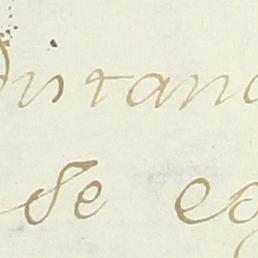 distanc
se eg